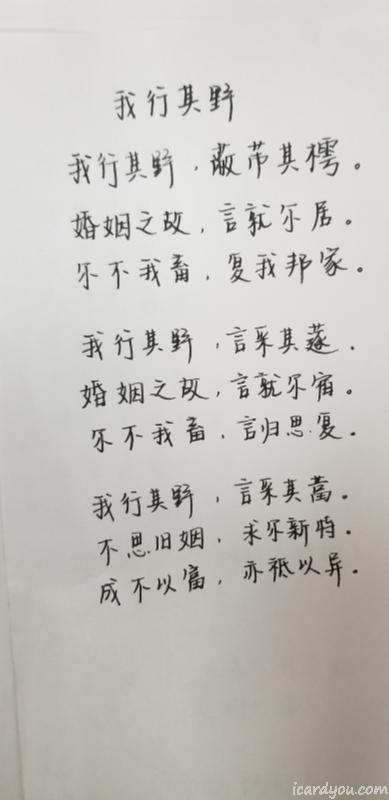 我行其野
我行其野，蔽芾其樗。
婚姻之故，言就尔居。
尔不我畜，复我邦家。
我行其野，言采其蓫.
婚姻之故，言就尔宿。
尔不我畜，言归思复。
我行其野，言采其葍。
不思旧姻，求尔新特.
成不以富，亦祗以异.
icardyou.com